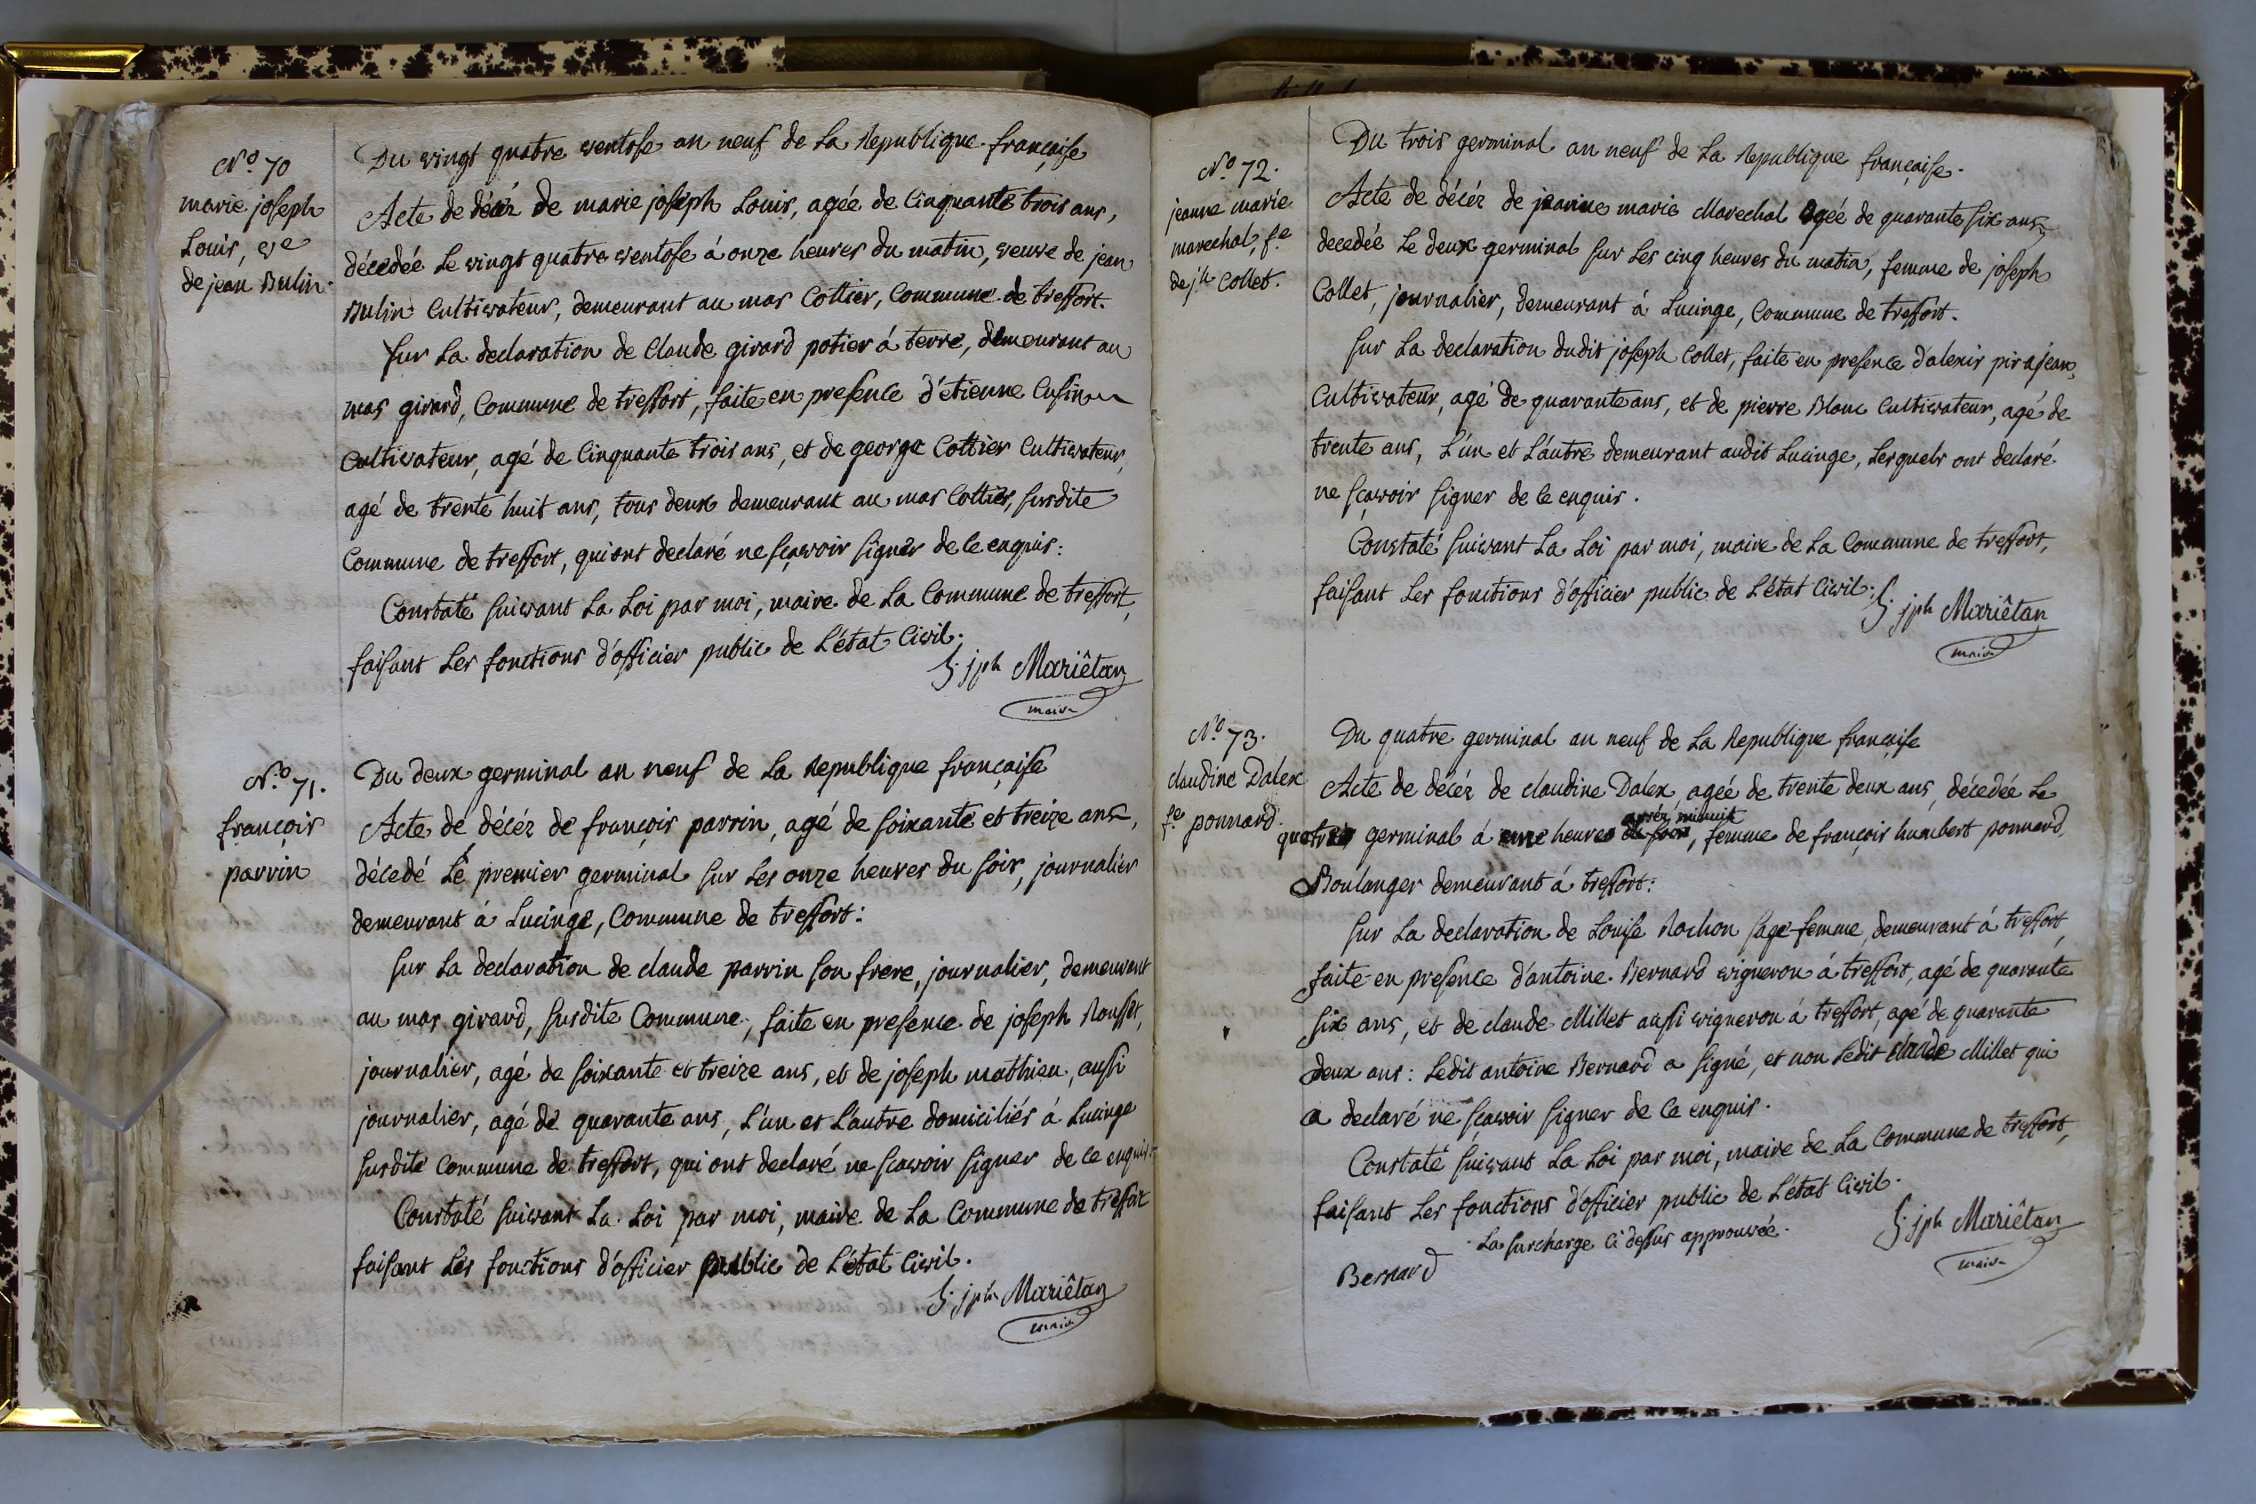 N.o 70
marie joseph
Louis, ve
de jean Bulin.
Du vingt quatre ventose an neuf de La Republique française
Acte de décéz de marie joseph Louis, agée de Cinquante trois ans,
décedée Le vingt quatre ventose á onze heures du matin, veuve de jean
Bulin Cultivateur, demeurant au mas Cottier, Commune de treffort.
Sur La declaration de Claude girard potier á terre, demeurant au
mas girard, Commune de treffort, faite en presence d'étienne Cusin
Cultivateur, agé de Cinquante trois ans, et de george Cottier Cultivateur,
agé de trente huit ans, tous deux demeurant au mas Cottier, susdite
Commune de treffort, qui ont declaré ne sçavoir signer de ce enquis:
Constaté suivant La Loi par moi, maire de La Commune de treffort,
faisant Les fonctions d'officier public de L'état Civil.
jph Mariêtan
maire
N.o 71.
françois
parrin
Du deux germinal an neuf de La Republique française
Acte de décéz de françois parrin, agé de soixante et treize ans,
décedé Le premier germinal sur Les onze heures du soir, journalier
demeurant á Lucinge, Commune de treffort:
Sur La declaration de claude parrin son frere, journalier, demeurant
au mas girard, susdite Commune, faite en presence de joseph Rousset,
journalier, agé de soixante et treize ans, et de joseph mathieu, aussi
journalier, agé de quarante ans, L'un et L'autre domiciliés á Lucinge
susdite Commune de treffort, qui ont declaré ne sçavoir signer de ce enquis:
Constaté suivant La Loi par moi, maire de La Commune de treffort
faisant Les fonctions d'officier public de L'état Civil.
jph Mariêtan
maire
N.o 72.
jeanne marie
marechal, f.e
de jh Collet.
Du trois germinal an neuf de La Republique française.
Acte de décéz de jeanne marie Marechal agée de quarante six ans,
decedée Le deux germinal sur Les cinq heures du matin, femme de joseph
Collet, journalier, demeurant á Lucinge, Commune de treffort.
Sur La declaration dudit joseph Collet, faite en presence d'alexis pirajean,
Cultivateur, agé de quarante ans, et de pierre Blanc Cultivateur, agé de
trente ans, L'un et L'autre demeurant audit Lucinge, Lesquels ont declaré
ne sçavoir signer de ce enquis.
Constaté suivant La Loi par moi, maire de La Commune de treffort,
faisant Les fonctions d'officier public de L'état Civil.
jph Mariêtan
maire
N.o 73.
claudine Dalex
f.e ponnard.
Du quatre germinal an neuf de La Republique française
Acte de décéz de claudine Dalex, agée de trente deux ans, décedée Le
aprés minuit
quatre germinal á une heure du soir, femme de françois humbert ponnard,
Boulanger demeurant á treffort:
Sur La declaration de Louise Rochon sage-femme, demeurant á treffort,
faite en presence d'antoine Bernard vigneron á treffort, agé de quarante
six ans, et de claude Millet aussi vigneron á treffort, agé de quarante
deux ans: Ledit antoine Bernard a signé, et non Ledit claude Millet qui
a declaré ne sçavoir signer de Ce enquis.
Constaté suivant La Loi par moi, maire de La Commune de treffort,
faisant Les fonctions d'officier public de L'état Civil.
La surcharge Ci dessus approuvée.
jph Mariêtan
maire
Bernard